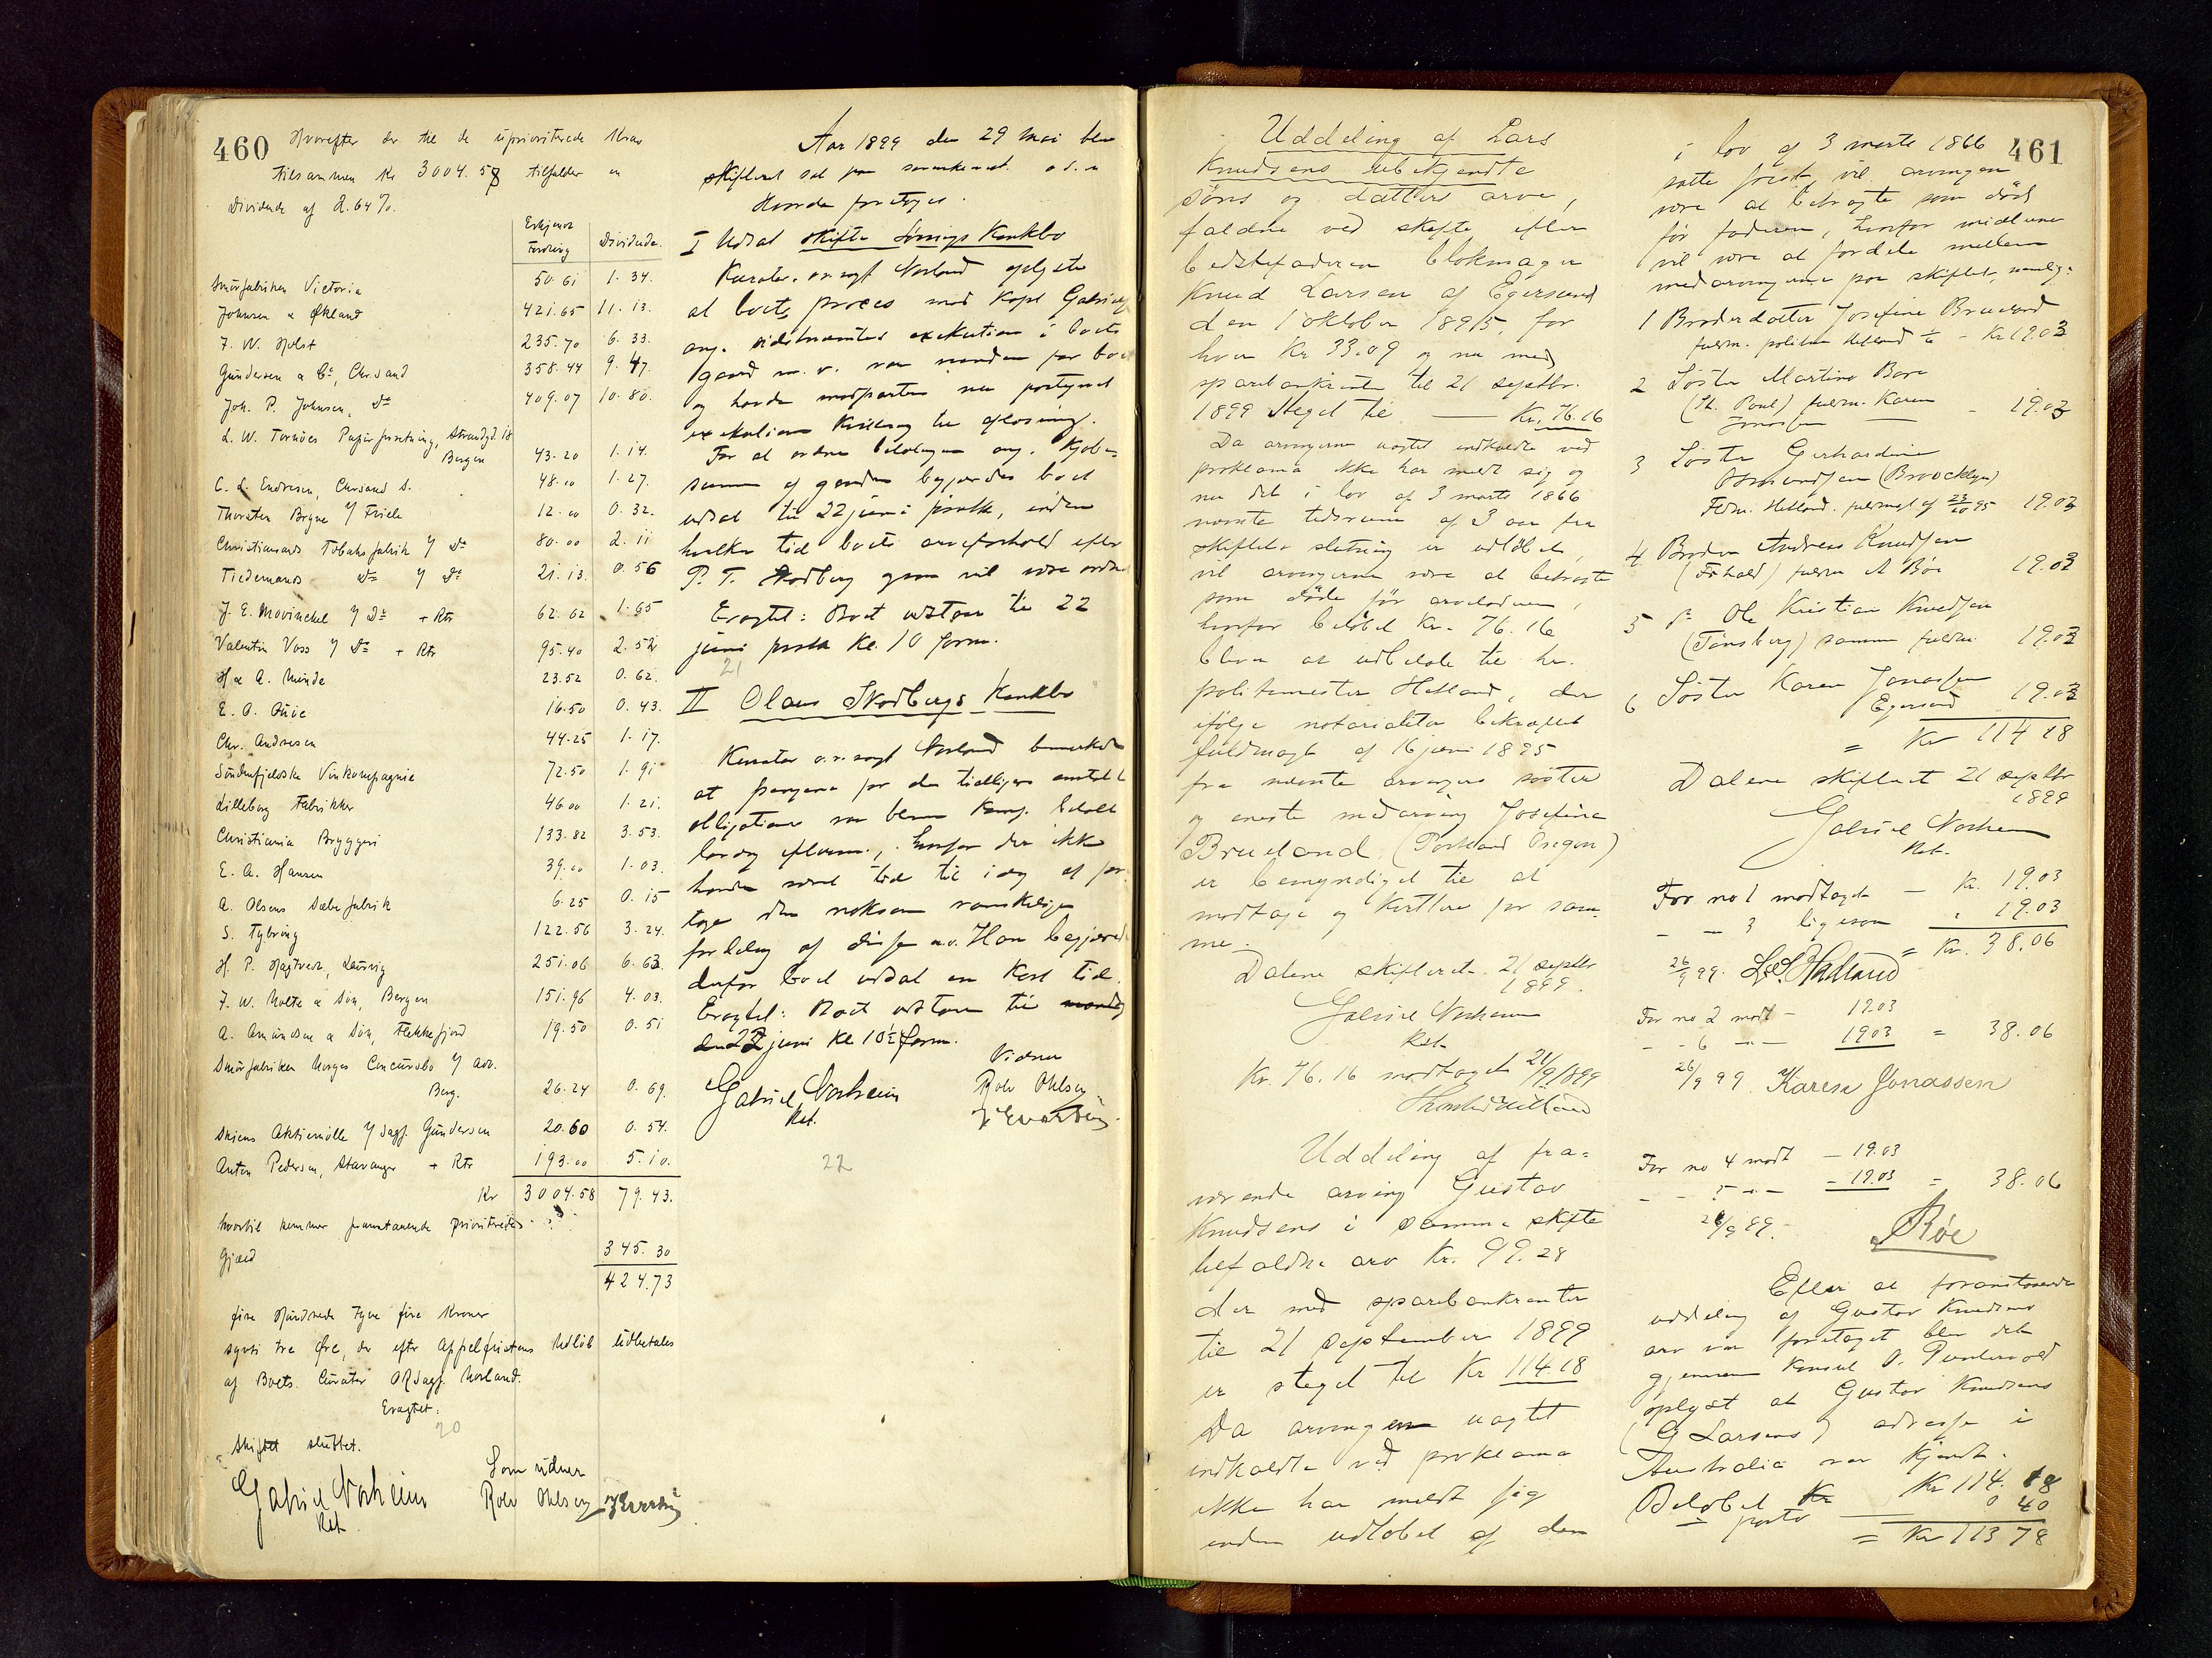 460
Hvorefter der til de uprioriterede Krav
tilsammen Kr 3004.58 tilfalder en
Dividende af 2.64 %.
Erkjendt Fordring Dividende.
Smörfabriken Victoria 50.61 1.34.
Johnsen & Økland 421.65 11.13.
F. W. Holst 235.70 6.33.
Gundersen & Co, Chrsand 358.44 9.47.
Joh. P. Johnsen, Do 409.07 10.80.
L. W. Tornöes Papirforretning, Strandgd. 18
Bergen 43.20 1.14.
C. L. Endresen, Chrsand S. 48.00 1.27.
Thorsten Bryne 12.00 0.32.
Christiansands Tobaksfabrik 80.00 2.11
Tiedemands Do 21.13. 0.56
J. E. Mowinckel + Rtr 62.62 1.65
Valentin Voss + Rtr 95.40 2.52
H & A. Minde 23.52 0.62.
16.50 0.43.
Chr. Andresen 44.25 1.17.
Söndenfjeldske Vinkompagnie 72.50 1.91
Lilleborg Fabrikker 46.00 1.21.
Christiania Bryggeri 133.82 3.53.
E. A. Hansen 39.00 1.03.
A. Olsens Sæbefabrik 6.25 0.15
S. Tybring 122.56 3.24.
H. P. Hagtvedt, Laurvig 251.06 6.63.
F. W. Holte & Sön, Bergen 151.96 4.03.
A. Amundsen & Sön, Flekkefjord 19.50 0.51
Smörfabriken Norges Concursbo
Berg. 26.24 0.69.
Skiens Aktiemölle Gundersen 20.60 0.54.
Anton Pedersen, Stavanger + Rtr 193.00 5.10.
Kr 3004.58 79.43.
hvortil kommer foranstaaende prioriterede
Gjæld 345.30
424.73
fire Hundrede tyve fire Kroner
sytti tre Öre, der efter Appelfristens Udlöb udbetales
af Boets Curator ORsagf. Norland.
Eragtet:
20
Skiftet sluttet.
Som vidner
Gabriel Norheim Rolv Ohlsen
Kst.
Aar 1899 den 29 Mai blev
skifteret sat paa sorenskrivert.
Hvorda foretoges.
I Udsat skifte Konkbo
Kurator o.r.sagf Norland oplyste
at boets proces mod Kapt Gabrielsen
ang. exekution i boets
gaard m. v. var vunden for boet
og havde modparten nu
exekutions til aflösning.
For at ordne ang. Kjöbe-
summen af gaarden begjærdes boet
udsat til 22 juni förstk, inden
hvilken tid boets arveforhold efter
P. T. Skodberg vil være ordnet
Eragtet: Boet udstaar til 22
juni förstk Kl. 10 form.
21
II Olaus Skodbergs Konkbo
Kurator o.r.sagf Norland bemærkede
at pengene for den tidligere omtalte
obligation var bleven betalt
lördag efterm., hvorfor der ikke
havde været tid til idag at fore-
tage den noksom vanskelige
fordeling af disse m.v. Han begjærede
derfor boet udsat en kort tid.
Eragtet: Boet udstaar til
den 22 juni Kl 10½ form.
Vidner
Gabriel Norheim Rolv Ohlsen
Kst.
22
461
Uddeling af Lars
Knudsens ubekjendte
söns og datters arv,
faldne ved skifte efter
bedstefaderen blokmager
Knud Larsen af Egersund
den 1 oktober 1895, for
hver Kr 33.09 og nu med
sparebankrenter til 21 septbr.
1899 steget til — Kr. 76.16
Da arvingerne uagtet indkaldte ved
proklama ikke har meldt sig og
nu det i lov af 3 marts 1866
nævnte tidsrum af 3 aar fra
skiftets slutning er udlöbet,
vil arvingerne være at betragte
som döde för arveladeren,
hvorfor belöbet Kr. 76.16
bliver at udbetale til hr.
politimester Hetland, der
ifölge notarialiter bekræftet
fuldmagt af 16 juni 1895
fra nævnte arvingers söster
og eneste medarving Josefine
Brueland (Portland Oregon)
er bemyndiget til at
modtage og kvittere for sam-
me.
Dalene skifteret 21 septbr
1899.
Gabriel Norheim
Kst.
Kr. 76.16 modtaget 21/9 1899
Uddeling af fra-
værende arving Gustav
Knudsens i samme skifte
tilfaldne arv Kr. 99.28
der med sparebankrenter
til 21 september 1899
er steget til Kr 114.18
Da arvingen uagtet
indkaldte ved proklama
ikke har meldt sig
inden udlöbet af den
i lov af 3 marts 1866
satte frist, vil arvingen
være at betragte som död
för faderen, hvorfor midlerne
vil være at fordele mellem
medarvingerne paa skiftet, nemlig:
1 Broderdatter Josefine Brueland
fuldm. politim Hetland — Kr 19.03
2 Söster Martine Bore
(St. Paul) fuldm. Karen
Jonassen — 19.03
3 Söster Gerhardine
Osmundsen (Broocklyn)
Fuldm. Hetland. fuldmagt af 95 19.03
4 Broder Andreas Knudsen
fuldm A Röe 19.03
5 do Ole Kristian Knudsen
(Tönsberg) samme fuldm. 19.03
6 Söster Karen Jonassen
Egersund 19.03
= Kr 114 18
Dalene skifteret 21 septbr
1899
Gabriel Norheim
Kst.
For no 1 modtaget — Kr. 19.03
— — 3 ligesom " 19.03
= Kr. 38.06
26/9 99.
For no 2 modt — 19.03
— - 6 -"- 19.03 = 38.06
26/9 99 Karen Jonassen
For no 4 modt — 19.03
- - 5 -"- — 19.03 = 38.06
26/9 99. Röe
Efter at foranstaaende
uddeling af Gustav Knudsens
arv var foretaget blev det
gjennem konsul O. Puntervold
oplyst at Gustav Knudsens
(G Larsens) adresse i
Australia var kjendt.
Belöbet Kr 114.18
÷ porto — 0 40
= Kr 113 78